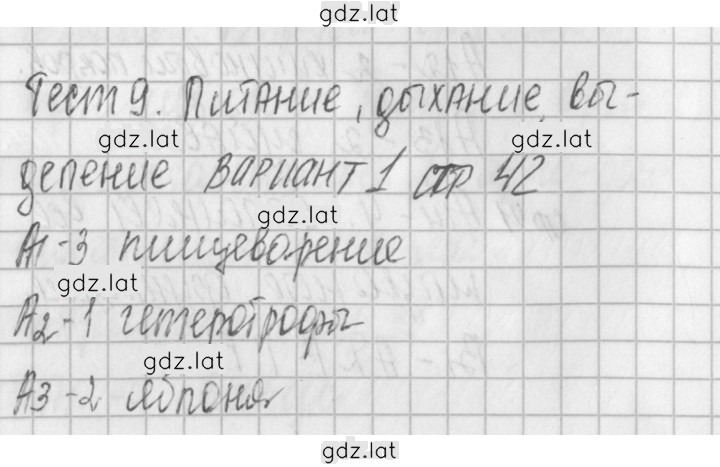 gdz.lat
Тест 9. Питание, дыхание, вы-
gdz.lat gdz.lat
деление Вариант 1 стр 42
gdz.lat
А1-3 пищеварение
gdz.lat
А2-1 гетеротрофы
gdz.lat
А3-2 яблоня
gdz.lat